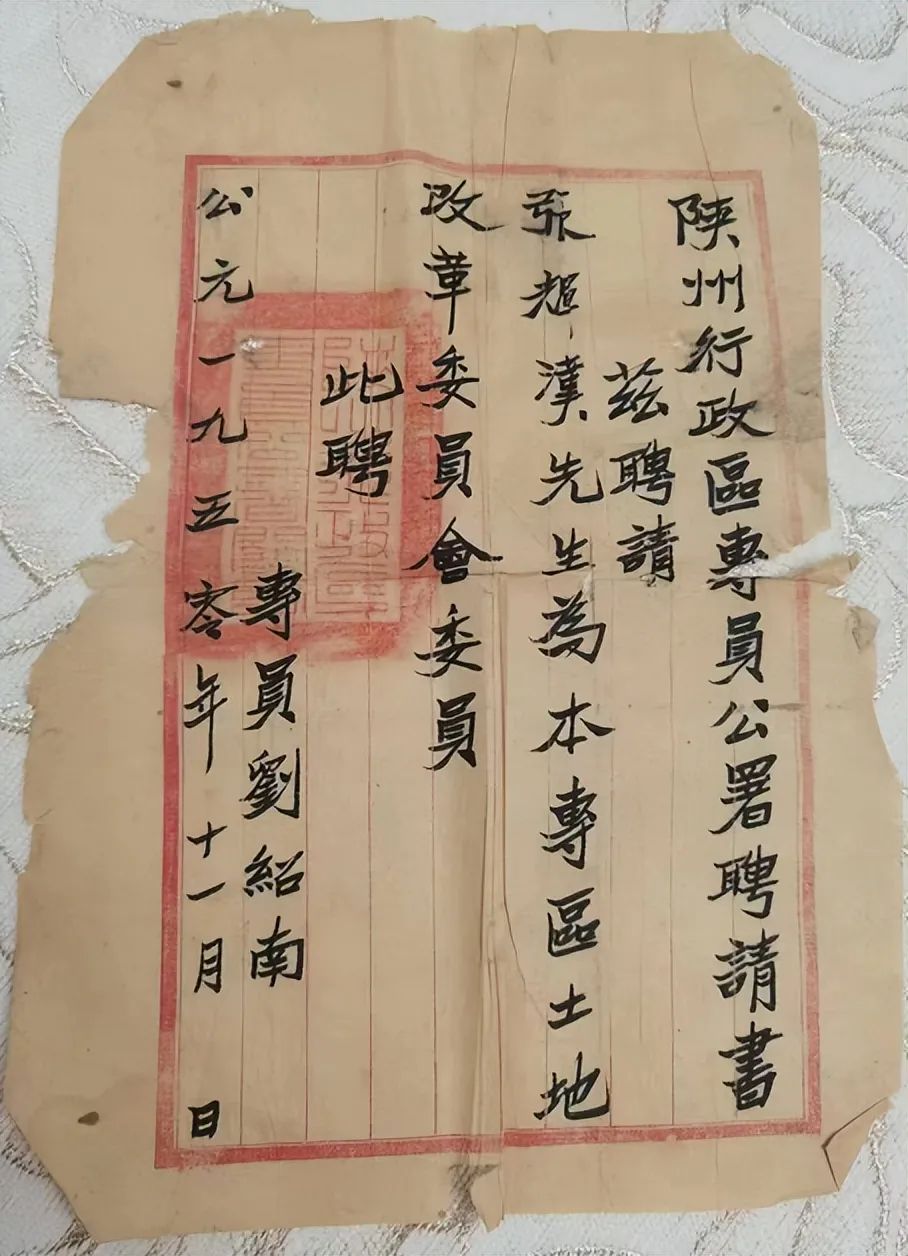 陕州行政區專員公署聘請書
茲聘請
張超漢先生為本專區土地
改革委員會委員
此聘
陝州行政區
專員劉紹南
公元一九五零年十一月 日